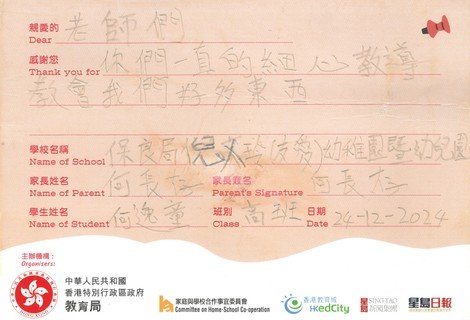 親愛的 老師們
Dear
感謝您 你們一直的細心教導
Thank you for
教會我們好多東西
學校名稱 保良局倪 玲(友愛)幼稚園暨幼兒園
Name of School
家長姓名 何長 家長簽名 何長
Name of Parent Parent's Signature
學生姓名 何逸童 班別 高班 日期 24-12-2024
Name of Student Class Date
主辦機構:
Organisers:
中華人民共和國
香港特別行政區政府
教育局
家庭與學校合作事宜委員會
Committee on Home-School Co-operation
香港教育城
HKedCity
星島 SING TAO
新聞集團
星島日報